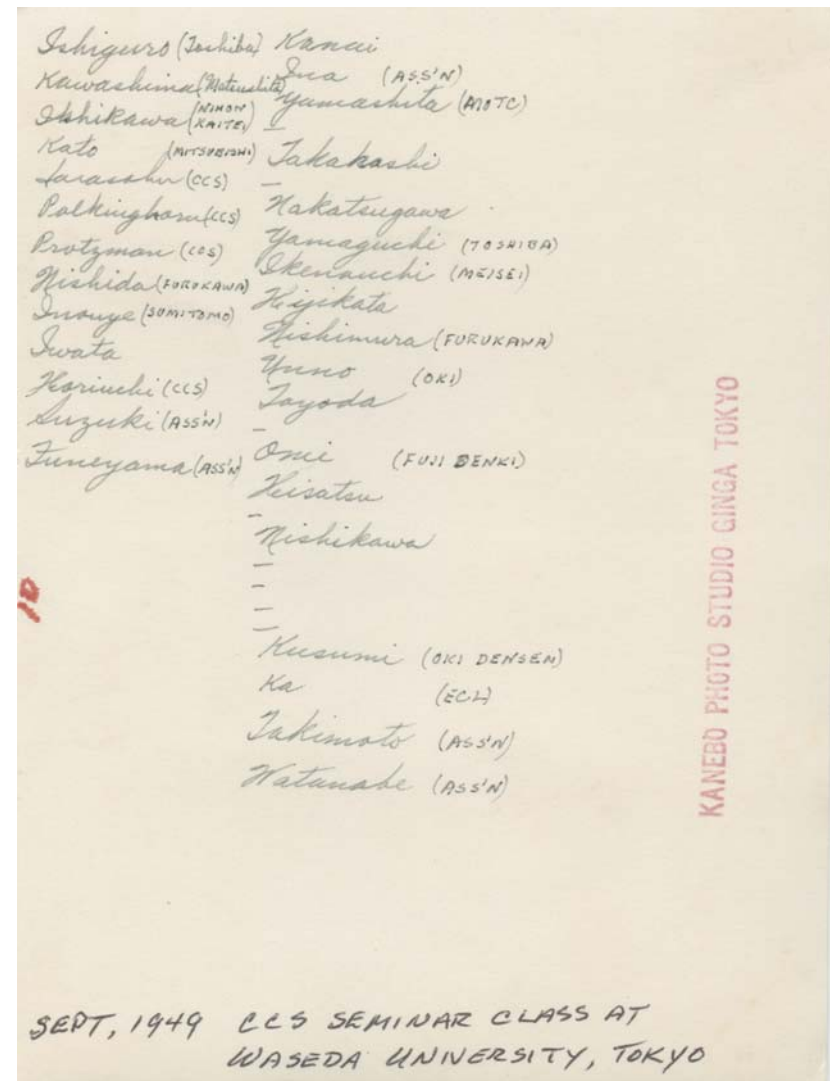 Ishiguro (Toshiba)
Kawashima (Matsushita)
Ishikawa (NIHON KAITEI)
Kato (MITSUBISHI)
Sarasohn (CCS)
Polkinghorn (CCS)
Protzman (CCS)
Nishida (FURUKAWA)
Inouye (SUMITOMO)
Iwata
Horiuchi (CCS)
Suzuki (ASS'N)
Funeyama (ASS'N)
Kanai
Ina (ASS'N)
Yamashita (MOTC)
–
Takahashi
–
Nakatsugawa
Yamaguchi (TOSHIBA)
Ikenouchi (MEISEI)
Hijikata
Nishimura (FURUKAWA)
Unno (OKI)
Toyoda
–
Omi (FUJI DENKI)
Hisatsu
–
Nishikawa
–
–
–
–
Kusumi (OKI DENSEN)
Ka (ECL)
Takimoto (ASS'N)
Watanabe (ASS'N)
10
KANEBO PHOTO STUDIO GINGA TOKYO
SEPT, 1949 CCS SEMINAR CLASS AT
WASEDA UNIVERSITY, TOKYO